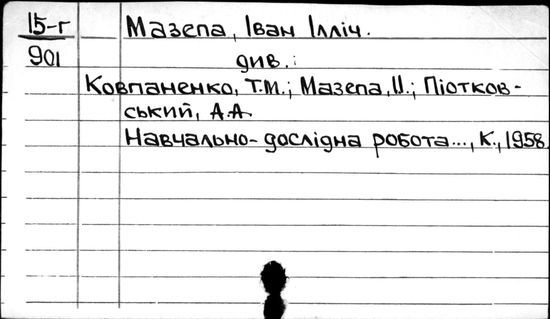 15-г
901
Мазепа, Іван Ілліч.
див.:
Ковпаненко, Т.М.; Мазепа, І.І.; Піотков-
ський, А.А.
Навчально-дослідна робота..., К., 1958.